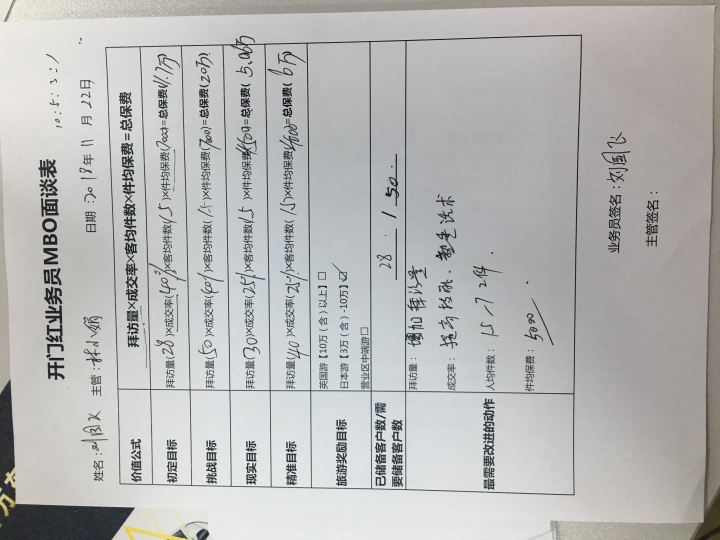 10:5:3:1
开门红业务员MBO面谈表
姓名：刘国飞 主管：林小娟 日期：2018年11月22日
价值公式 拜访量×成交率×客均件数×件均保费=总保费
初定目标 拜访量(28)×成交率(40%)×客均件数(1.5)×件均保费(7000)=总保费(11.7万)
挑战目标 拜访量(50)×成交率(40%)×客均件数(1.5)×件均保费(7000)=总保费(20万)
现实目标 拜访量(30)×成交率(25%)×客均件数(1.5)×件均保费(4500)=总保费(5.06万)
精准目标 拜访量(40)×成交率(25%)×客均件数(1.5)×件均保费(4000)=总保费(6万)
旅游奖励目标
英国游【10万（含）以上】□
日本游【3万（含）-10万】☑
营业区中端游□
已储备客户数/需要储备客户数 28 / 50.
最需要改进的动作
拜访量：增加拜访量
成交率：提高技能．话术
人均件数：1.5-7件．
件均保费：5000
业务员签名：刘国飞
主管签名：